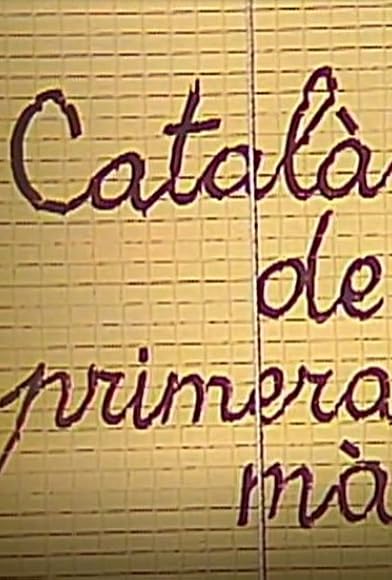 Català
de
primera
mà